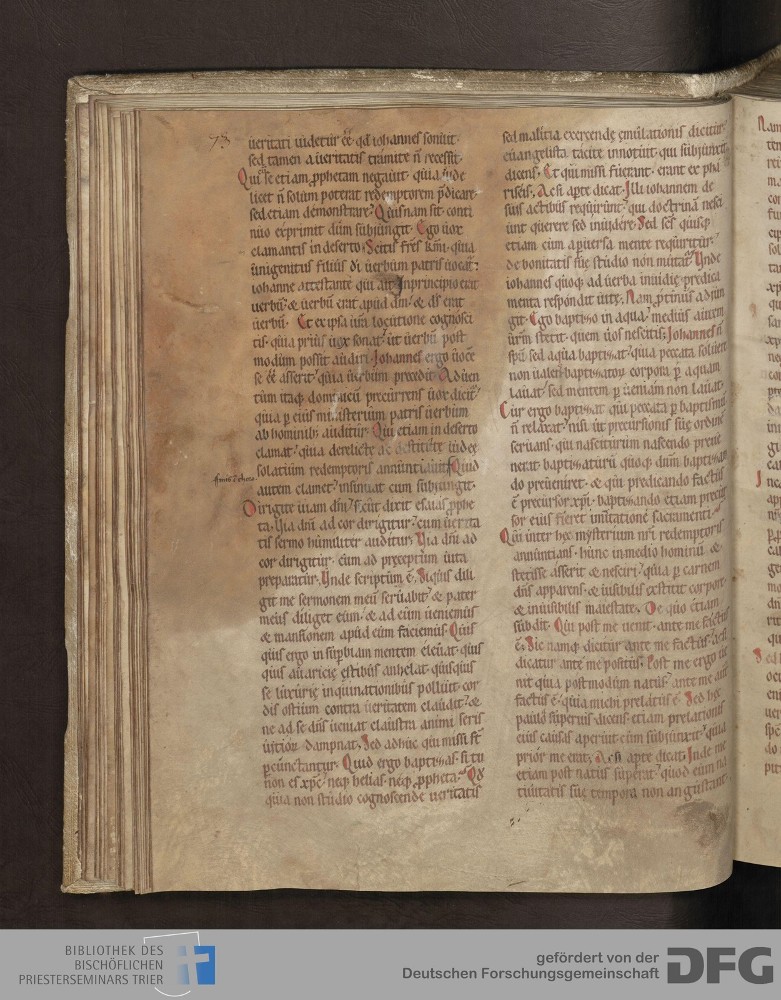 78
ueritati uidetur eē qd̄ iohannes sonuit·
sed tamen a ueritatis tramite n̄ recessit·
Qui se etiam ꝓphetam negauit· quia inde
licet n̄ solum poterat redemptorem p̄dicare·
sed etiam demonstrare· Quisnam sit· conti
nuo exprimit dum subiungit· Ego uox
clamantis in deserto· Scitis fr̄s kmi· quia
unigenitus filius di uerbum patris uocat᷑·
iohanne attestante qui ait· Inprincipio erat
uerbū· & uerbū erat apud dm̄· & ds̄ erat
uerbū· Et ex ipsa ur̄a locutione cognosci
tis· quia prius uox sonat· ut uerbū post
modum possit audiri· Iohannes ergo uoce
se eē asserit· quia uerbum precedit· Aduen
tum itaq; dominicū precurrens uox dicit᷑·
quia ꝑ eius ministerium patris uerbum
ab hominib; auditur· Qui etiam in deserto
clamat· quia derelicte ac destitute iudeę
solatium redemptoris annuntiauit· Quid
autem clamet· insinuat cum subiungit·
Dirigite uiam dn̄i· sicut dixit esaias ꝓphe
ta· Uia dn̄i ad cor dirigitur· cum uerita
tis sermo humiliter auditur· Uia dn̄i ad
cor dirigitur· cum ad preceptum uita
preparatur· Unde scriptum ē· Siquis dili
git me sermonem meū seruabit· & pater
meus diliget eum· & ad eum ueniemus
& mansionem apud eum faciemus· Quis
quis ergo in suꝑbiam mentem eleuat· quis
quis auaricię estibus anhelat· quisquis
se luxurię inquinationibus polluit· cor
dis ostium contra ueritatem claudit· &
ne ad se dn̄s ueniat claustra animi seris
uitiorū dampnat· Sed adhuc qui missi st̄
ꝑcunctantur· Quid ergo baptizas· si tu
non es xp̄c· neq; helias· neq; ꝓpheta· Qd̄
quia non studio cognoscende ueritatis
sed malitia exercendę ęmulationis dicitur·
euangelista tacite innotuit· qui subiunxit
dicens· Et qui missi fuerant· erant ex pha
riseis· Ac si apte dicat· Illi iohannem de
suis actibus requirunt· qui doctrinā nesci
unt querere sed inuidere· Sed sc̄s quisq;
etiam cum a ꝑuersa mente requiritur·
de bonitatis suę studio non mutat᷑· Unde
iohannes quoq; ad uerba inuidię· predica
menta respondit uitę· Nam ꝓtinus adiun
git· Ego baptizo in aqua· medius autem
ur̄m stetit· quem uos nescitis· Iohannes n̄
spū sed aqua baptizat· quia peccata soluere
non ualens baptizatorū corpora ꝑ aquam
lauat· sed mentem ꝑ ueniam non lauat·
Cur ergo baptizat qui peccata ꝑ baptismū
n̄ relaxat· nisi ut precursionis suę ordinē
seruans· qui nasciturum nascendo preue
nerat· baptizaturū quoq; dnm̄ baptizan
do preueniret· & qui predicando factus
ē precursor xp̄i· baptizando etiam precur
sor eius fieret imitatione sacramenti·
Qui inter hec mysterium nr̄i redemptoris
annuntians· hunc in medio hominū &
stetisse asserit & nesciri· quia ꝑ carnem
dn̄s apparens· & uisibilis exstitit corpore
& inuisibilis maiestate· De quo etiam
subdit· Qui post me uenit· ante me factus
ē· Sic namq; dicitur ante me factus· acsi
dicatur ante me positus· Post me ergo ue
nit quia postmodum natus· ante me au
factus ē· quia michi prelatus ē· Sed hęc
paulo superius dicens· etiam prelationis
eius causas aperuit· cum subiunxit· quia
prior me erat· Ac si apte dicat· Inde me
etiam post natus superat· quod eum na
tiuitatis suę tempora non angustant·
BIBLIOTHEK DES
BISCHÖFLICHEN
PRIESTERSEMINARS TRIER
gefördert von der
Deutschen Forschungsgemeinschaft
DFG